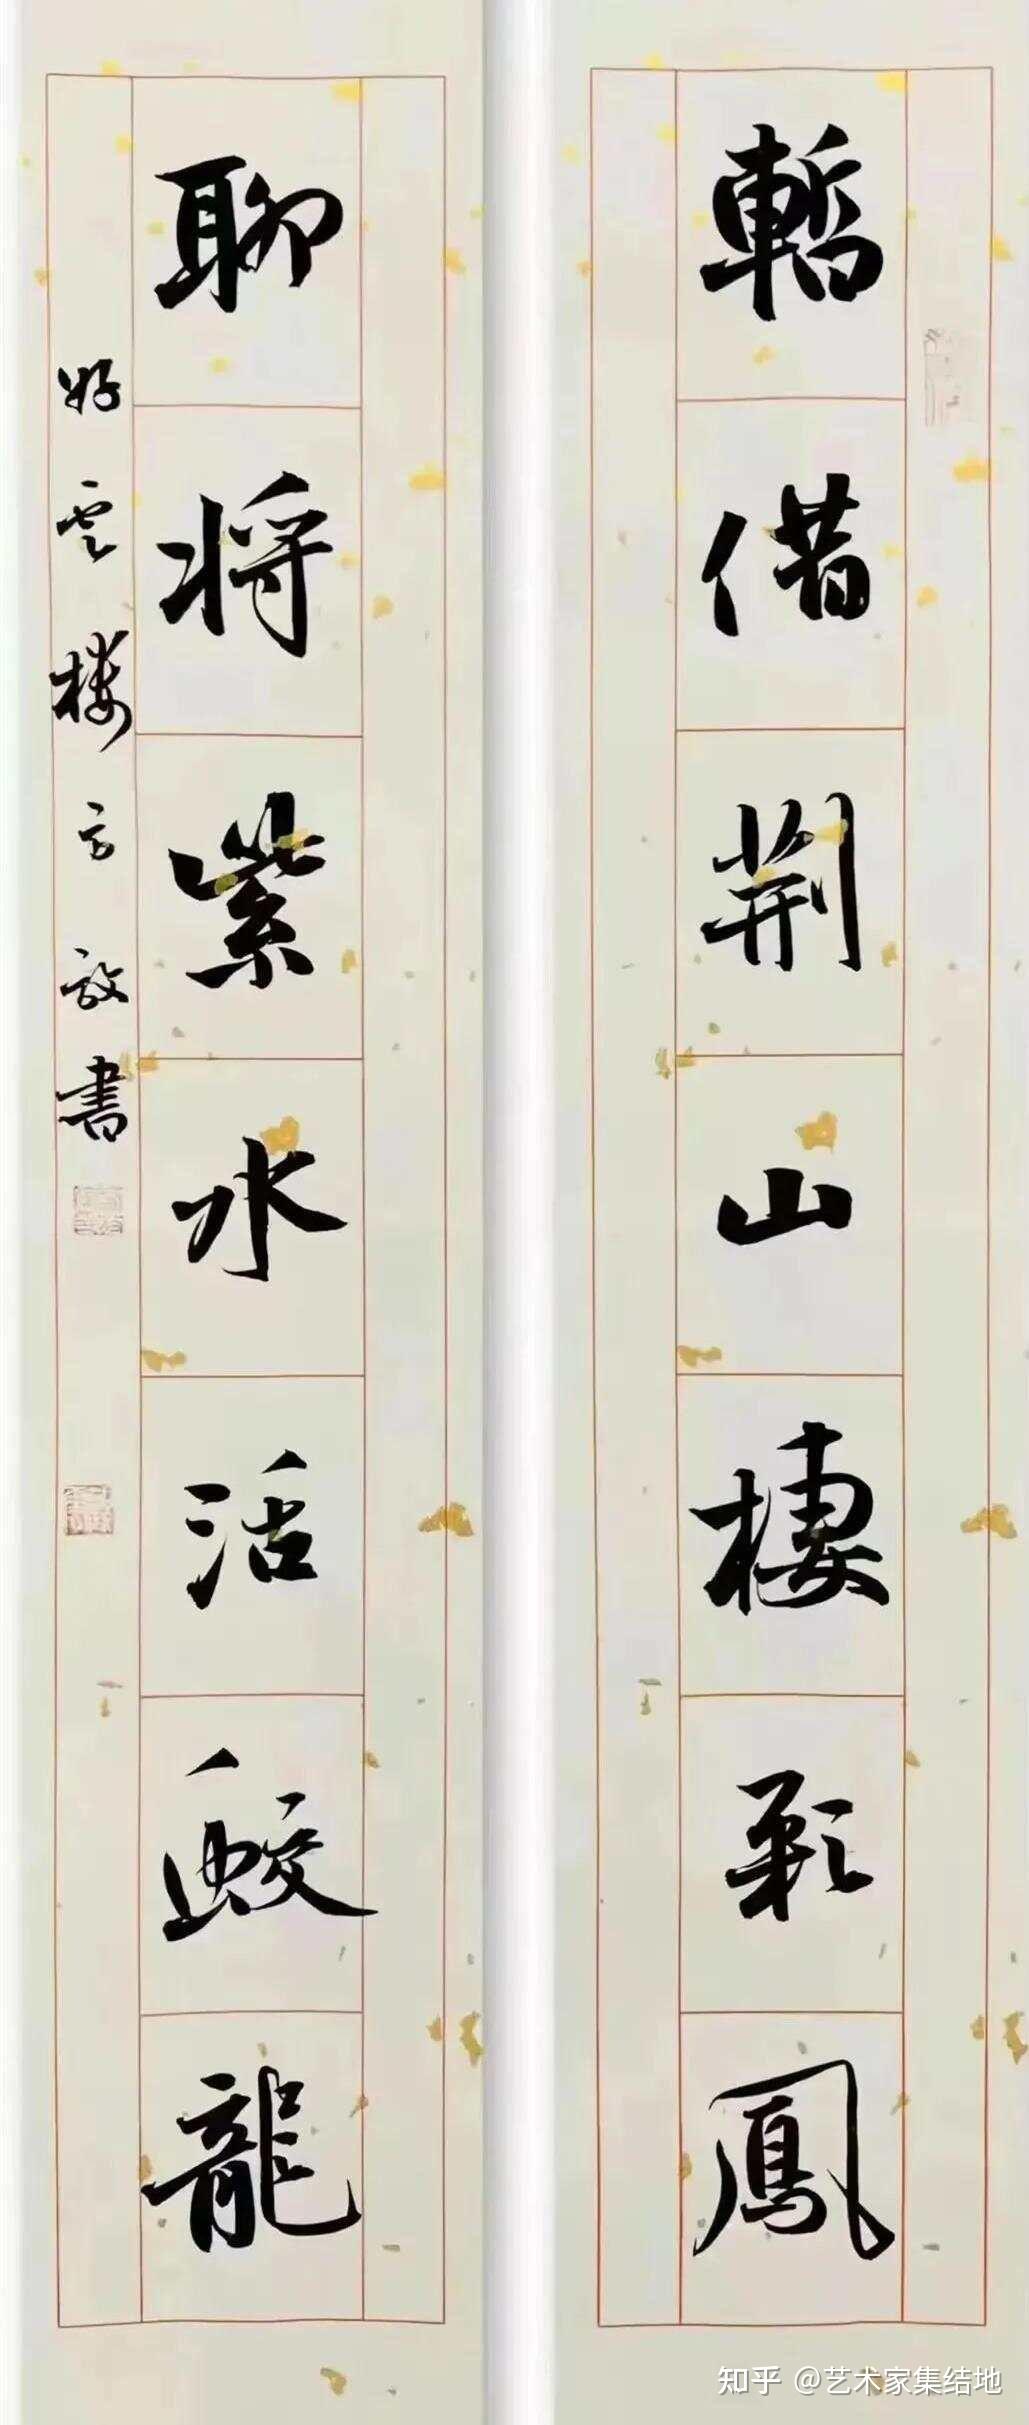 暫借荆山棲彩鳳
聊将紫水活蛟龍
好雲楼方書
知乎 @艺术家集结地